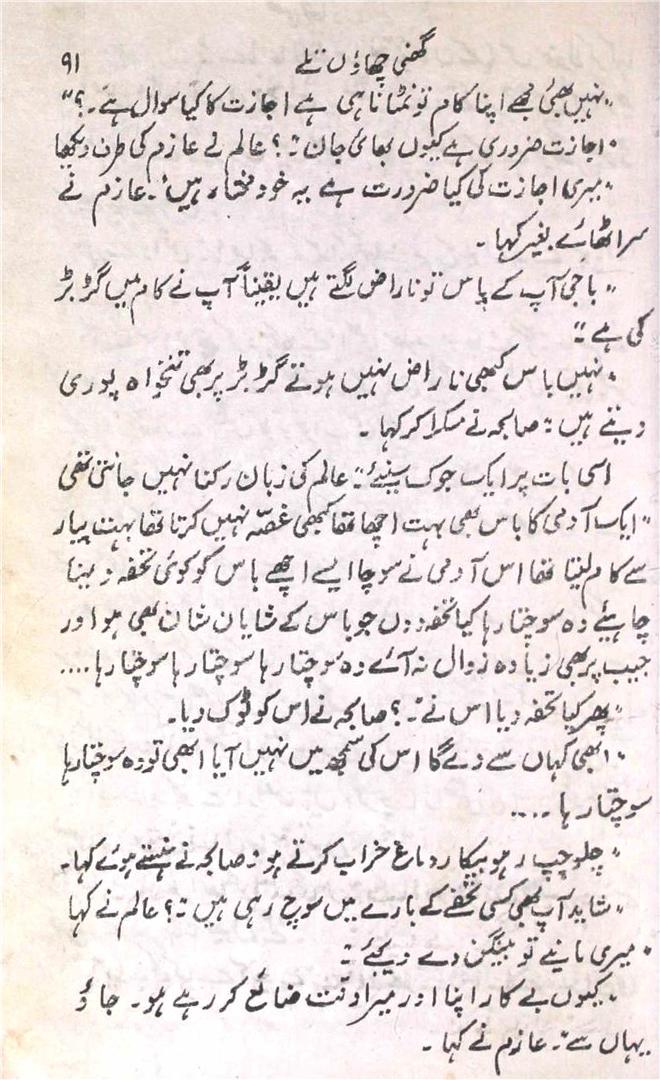 گھنی چھاؤں تلے
۹۱
"نہیں بھئی مجھے اپنا کام تو نمٹانا ہی ہے اجازت کا کیا سوال ہے۔؟"
"اجازت ضروری ہے کیوں بھائی جان"۔؟ عالم نے عازم کی طرف دیکھا
"میری اجازت کی کیا ضرورت ہے یہ خود مختار ہیں"۔ عازم نے
سر اٹھائے بغیر کہا۔
"باجی آپ کے پاس تو ناراض لگتے ہیں یقیناً آپ نے کام میں گڑ بڑ
کی ہے"۔
"نہیں باس کبھی ناراض نہیں ہوتے گڑ بڑ پر بھی تنخواہ پوری
دیتے ہیں"۔ صالحہ نے مسکرا کر کہا۔
اسی بات پر ایک جوک سنیئے"۔ عالم کی زبان رکنا نہیں جانتی تھی
"ایک آدمی کا باس بھی بہت اچھا تھا کبھی غصّہ نہیں کرتا تھا بہت پیار
سے کام لیتا تھا اس آدمی نے سوچا ایسے اچھے باس کو کوئی تحفہ دینا
چاہیئے وہ سوچتا رہا کیا تحفہ دوں جو باس کے شایان شان بھی ہو اور
جیب پر بھی زیادہ زوال نہ آئے وہ سوچتا رہا سوچتا رہا سوچتا رہا....
"پھر کیا تحفہ دیا اس نے"۔؟ صالحہ نے اس کو ٹوک دیا۔
"ابھی کہاں سے دے گا اس کی سمجھ میں نہیں آیا ابھی تو وہ سوچتا رہا
سوچتا رہا....
"چلو چپ رہو بیکار دماغ خراب کرتے ہو"۔ صالحہ نے ہنستے ہوئے کہا۔
"شاید آپ بھی کسی تحفے کے بارے میں سوچ رہی ہیں"۔؟ عالم نے کہا
"میری مانیئے تو بینگن دے دیجئے"۔
"کیوں بے کار اپنا اور میرا وقت ضائع کر رہے ہو۔ جاؤ
یہاں سے"۔ عازم نے کہا۔